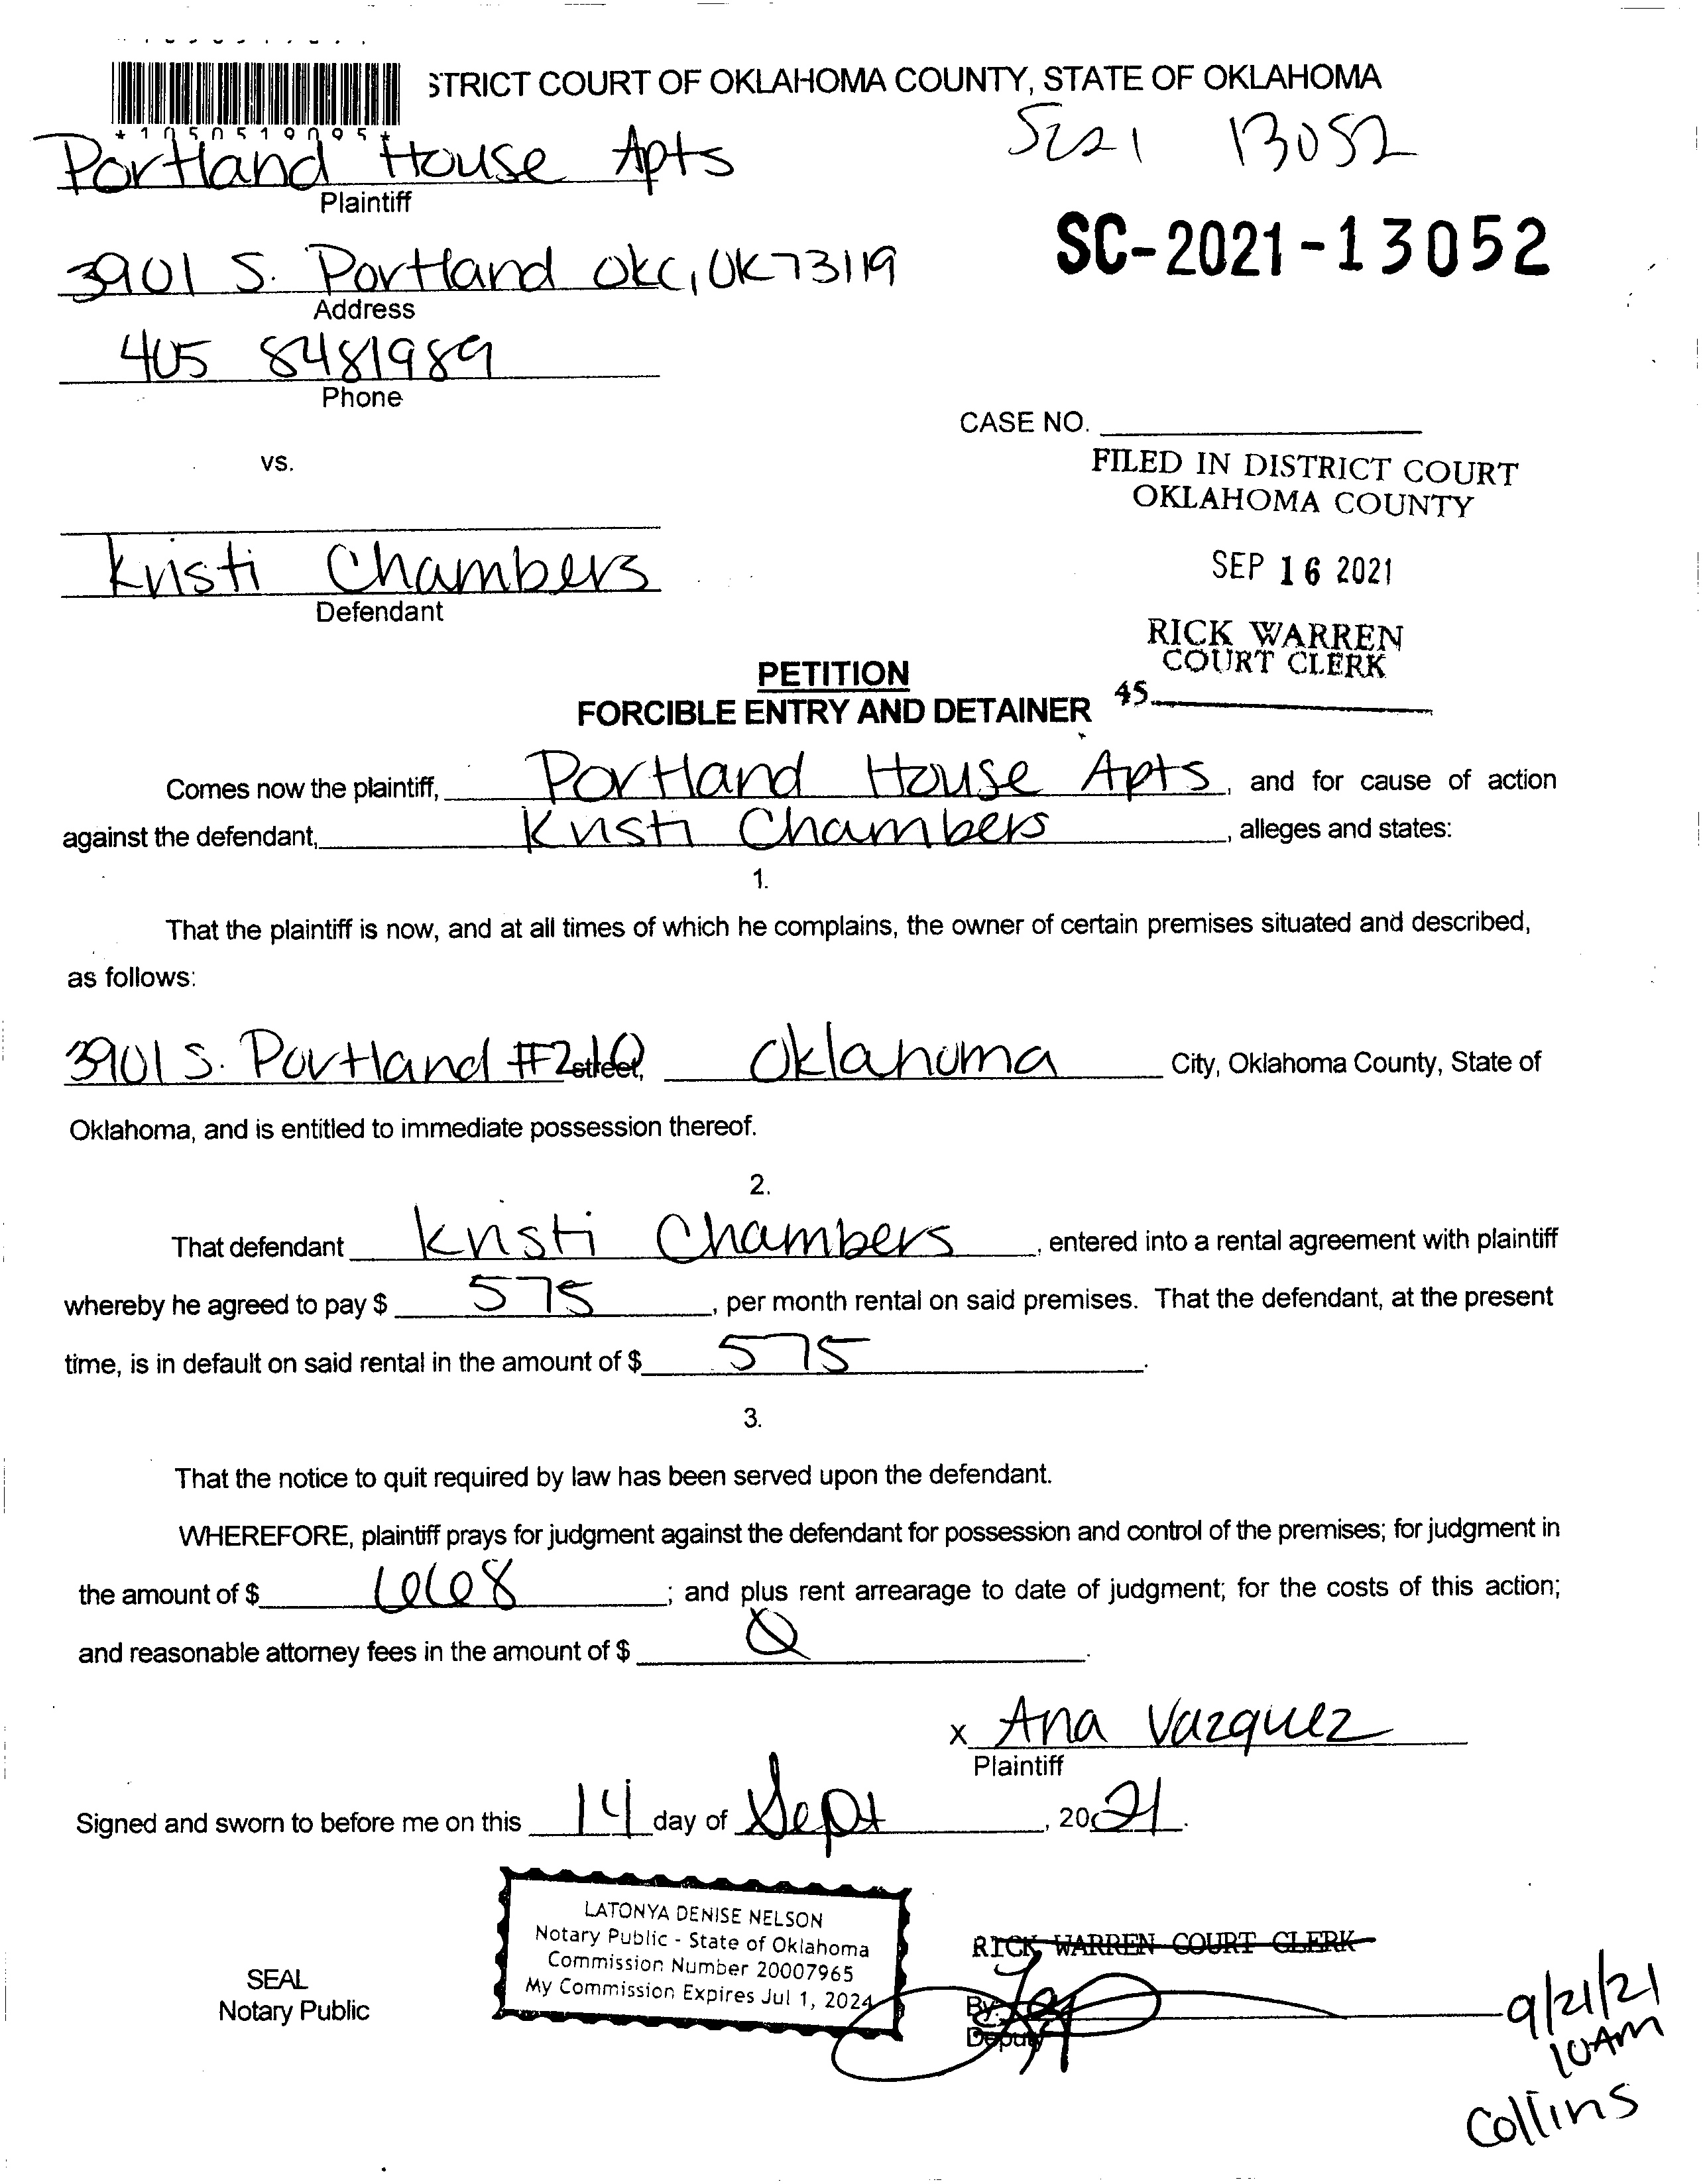 STRICT COURT OF OKLAHOMA COUNTY, STATE OF OKLAHOMA
*1050519095*
SC21 13052
Portland House Apts
Plaintiff
SC-2021-13052
3901 S. Portland OKC, OK 73119
Address
405 8481989
Phone
CASE NO.
vs.
FILED IN DISTRICT COURT
OKLAHOMA COUNTY
SEP 16 2021
Kristi Chambers
Defendant
RICK WARREN
COURT CLERK
45
PETITION
FORCIBLE ENTRY AND DETAINER
Comes now the plaintiff, Portland House Apts, and for cause of action
against the defendant, Kristi Chambers, alleges and states:
1.
That the plaintiff is now, and at all times of which he complains, the owner of certain premises situated and described,
as follows:
3901 S. Portland # street, Oklahoma City, Oklahoma County, State of
Oklahoma, and is entitled to immediate possession thereof.
2.
That defendant Kristi Chambers, entered into a rental agreement with plaintiff
whereby he agreed to pay $ 575, per month rental on said premises. That the defendant, at the present
time, is in default on said rental in the amount of $ 575.
3.
That the notice to quit required by law has been served upon the defendant.
WHEREFORE, plaintiff prays for judgment against the defendant for possession and control of the premises; for judgment in
the amount of $ 668; and plus rent arrearage to date of judgment; for the costs of this action;
and reasonable attorney fees in the amount of $ 0.
X Ana Vazquez
Plaintiff
Signed and sworn to before me on this 14 day of Sept, 2021.
LATONYA DENISE NELSON
Notary Public - State of Oklahoma
Commission Number 20007965
My Commission Expires Jul 1, 2024
SEAL
Notary Public
RICK WARREN COURT CLERK
By:
Deputy
9/21/21
10AM
Collins